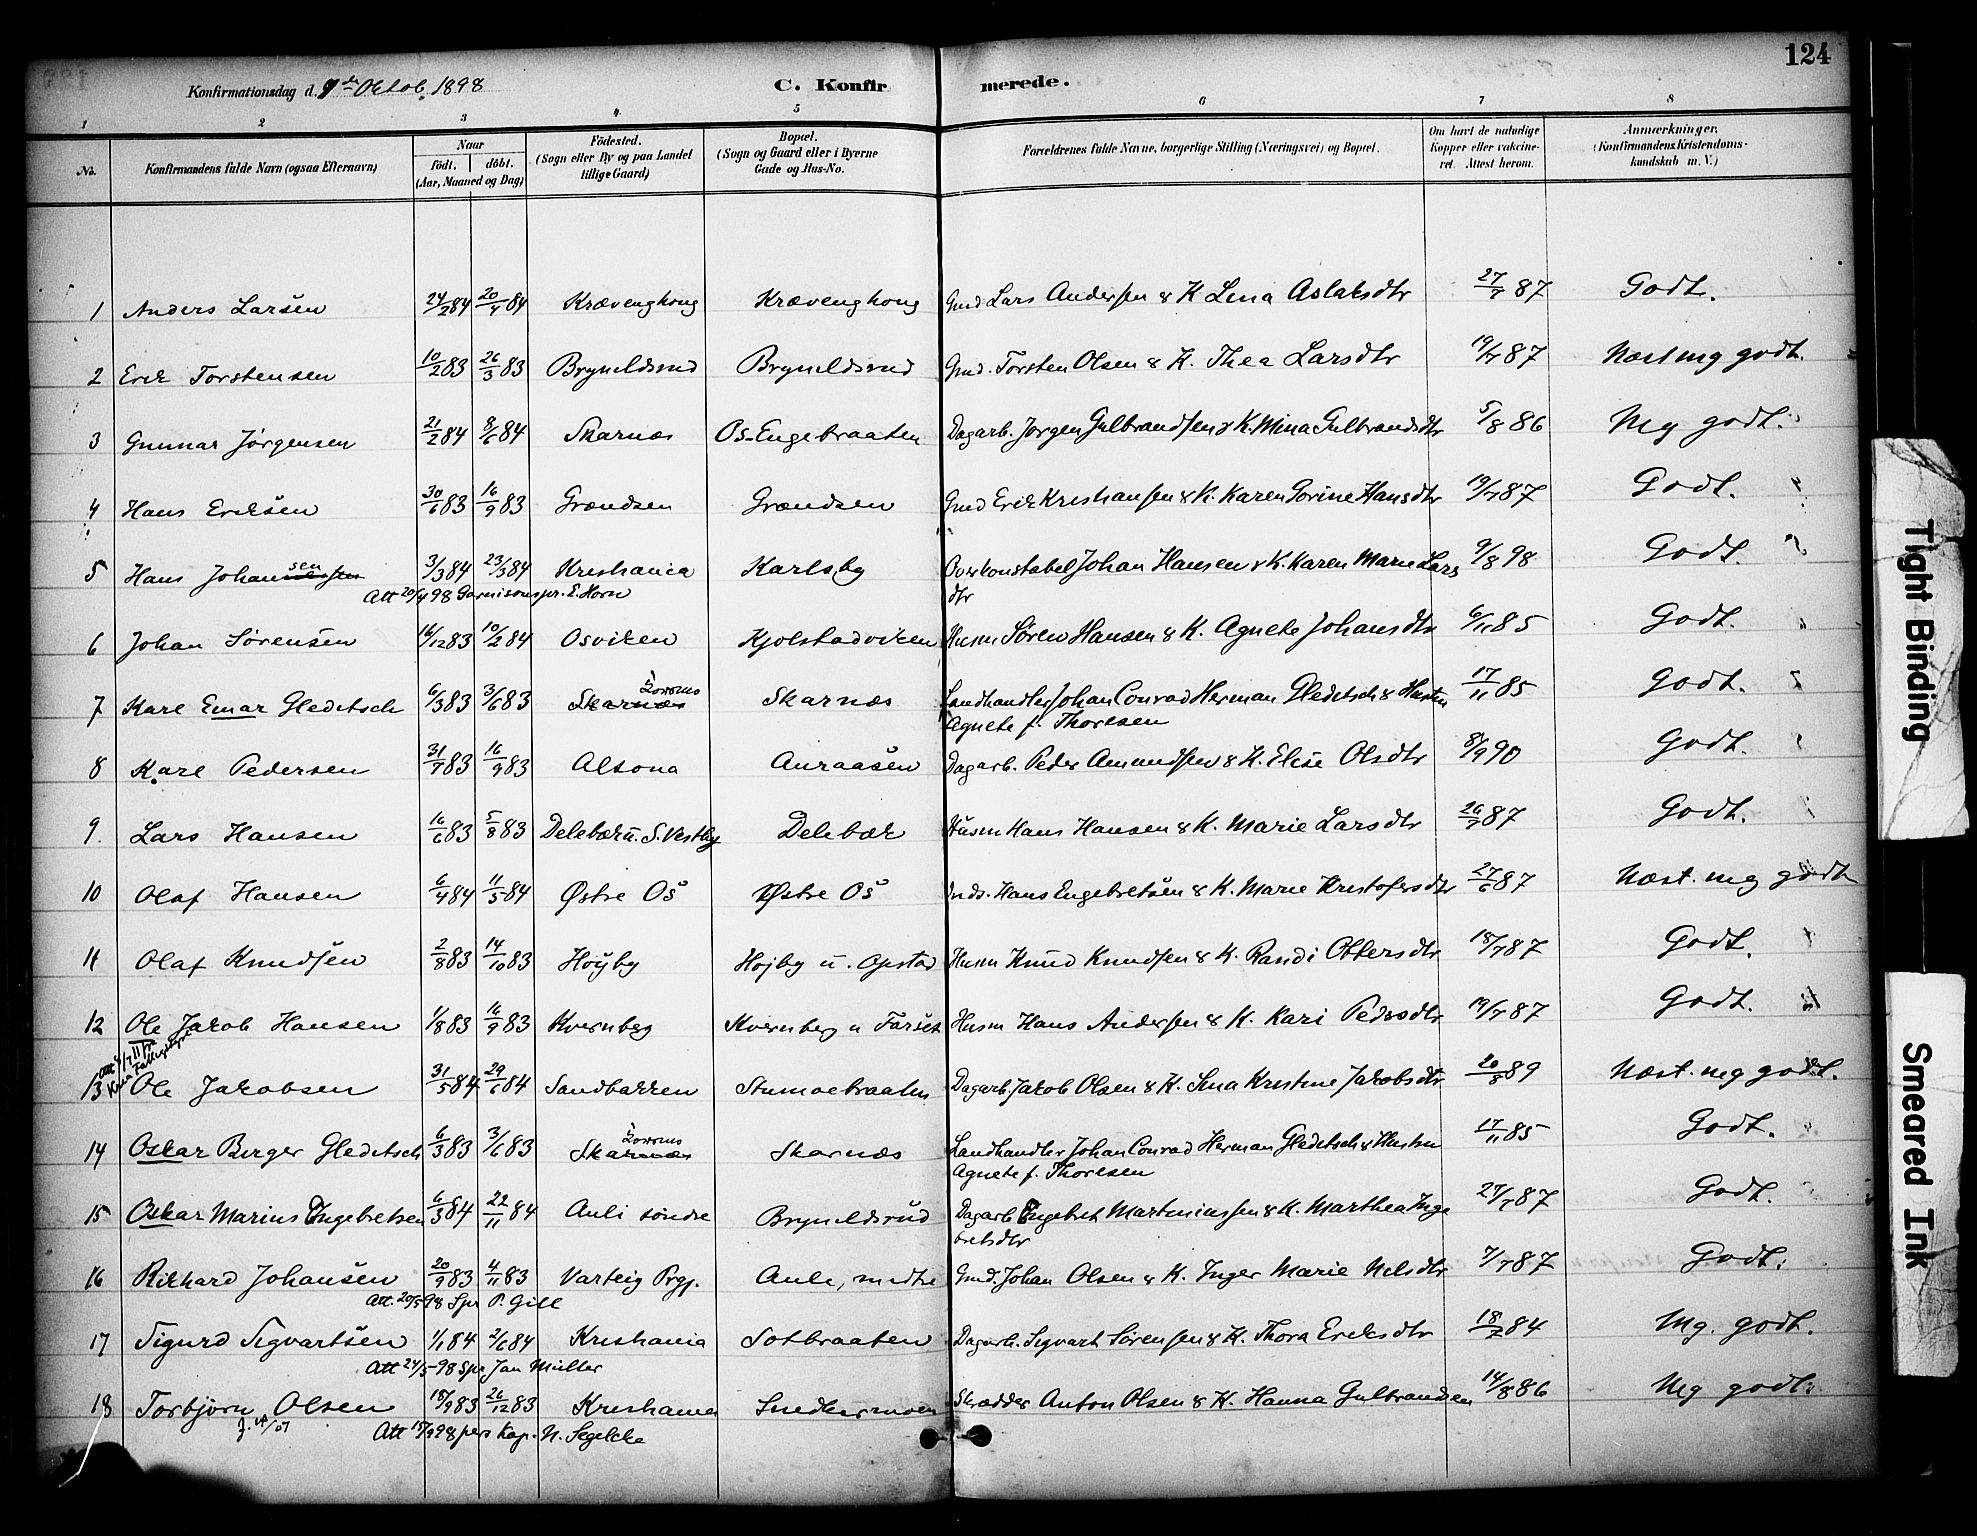 124
Konfirmationsdag d. 9de Oktob. 1898 C. Konfirmerede.
1 2 3 4 5 6 7 8
No. Konfirmandens fulde Navn (ogsaa Efternavn) Naar födt. döbt. (Aar, Maaned og Dag) Födested. (Sogn eller By og paa Landet tillige Gaard) Bopæl. (Sogn og Gaard eller i Byerne Gade og Hus-No. Forældrenes fulde Navne, borgerlige Stilling (Næringsvei) og Bopæl. Om havt de naturlige Kopper eller vakcineret. Attest herom. Anmærkninger. (Konfirmandens Kristendomskundskab m. V.)
1 Anders Larsen 24/2 84 20/4 84 Krævenghoug Krævenghoug Gmd Lars Andersen & K Lena Aslaksdtr 27/7 87 Godt.
2 Erik Torstensen 10/2 83 26/3 83 Bryneldsrud Bryneldsrud Gmd. Torsten Olsen & K. Thea Larsdtr 19/7 87 Næst mg godt.
3 Gunnar Jørgensen 21/2 84 8/6 84 Skarnæs Os-Engebraaten Dagarb. Jørgen Gulbrandsen & K. Mina Gulbrandsdtr 5/8 86 Mg godt.
4 Hans Eriksen 30/6 83 16/9 83 Grændsen Grændsen Gmd Erik Kristiansen & K. Karen Gorine Hansdtr 19/7 87 Godt.
5 Hans Johansen 3/3 84 23/3 84 Kristiania Karlsby Overkonstabel Johan Hansen & K. Karen Marie Lars 9/8 98 Godt.
Att 20/4 98 Garnisonspr. E. Horn dtr
6 Johan Sørensen 16/12 83 10/2 84 Osviken Kjolstadviken Husm Søren Hansen & K. Agnete Johansdtr 6/11 85 Godt.
7 Karl Emar Gleditsch 6/3 83 3/6 83 Skarnæs Skarnæs Landhandler Johan Conrad Herman Gleditsch & Hustru 17/11 85 Godt.
Agnete f. Thoresen
8 Karl Pedersen 31/7 83 16/9 83 Alsona Auraasen Dagarb. Peder Amundsen & K. Elise Olsdtr 8/9 90 Godt.
9. Lars Hansen 16/6 83 5/8 83 Delebæk u. S. Vestby Delebæk Husm Hans Hansen & K. Marie Larsdtr 26/7 87 Godt.
10 Olaf Hansen 6/4 84 11/5 84 Østre Os Østre Os Inds. Hans Engebretsen & K. Marie Kristofersdtr 27/6 87 Næst. mg godt
11 Olaf Knudsen 2/8 83 14/10 83 Høyby Højby u. Opstad Husm Knud Knudsen & K. Randi Ottersdtr 18/7 87 Godt.
12 Ole Jakob Hansen 1/8 83 16/9 83 Kvernberg Kvernberg u Farset Husm Hans Andersen & K. Kari Pedersdtr 19/7 87 Godt.
13 Ole Jakobsen 31/5 84 29/6 84 Sandbakken Stumoebraaten Dagarb. Jakob Olsen & K. Lina Kristine Jakobsdtr 20/8 89 Næst. mg godt.
14 Oskar Berger Gleditsch 6/3 83 3/6 83 Skarnæs Skarnæs Landhandler Johan Conrad Herman Gleditsch & Hustru 17/11 85 Godt.
Agnete f. Thoresen
15 Oskar Marius Engebretsen 6/3 84 22/11 84 Auli søndre Bryneldsrud Dagarb Engebret Martiniussen & K. Marthea Inge 27/7 87 Godt.
bretsdtr
16 Rikhard Johansen 20/9 83 4/11 83 Varteig Prgj. Aule, midtre Gmd. Johan Olsen & K. Inger Marie Nilsdtr 7/7 87 Godt.
Att. 20/5 98 Spr P. Gill
17 Sigurd Sigvartsen 1/1 84 2/6 84 Kristiania Sotbraaten Dagarb. Sigvart Sørensen & K. Thora Eriksdtr 18/7 84 Mg. godt.
Att 24/5-98 Spr Jan Müller
18 Torbjørn Olsen 18/9 83 26/12 83 Kristiania Snedkermoen Skrædder Anton Olsen & K. Hanna Gulbrandsen 14/8 86 Mg godt.
Att 15/9 98 pers Kap. N. Segelcke
Tight Binding
Smeared Ink